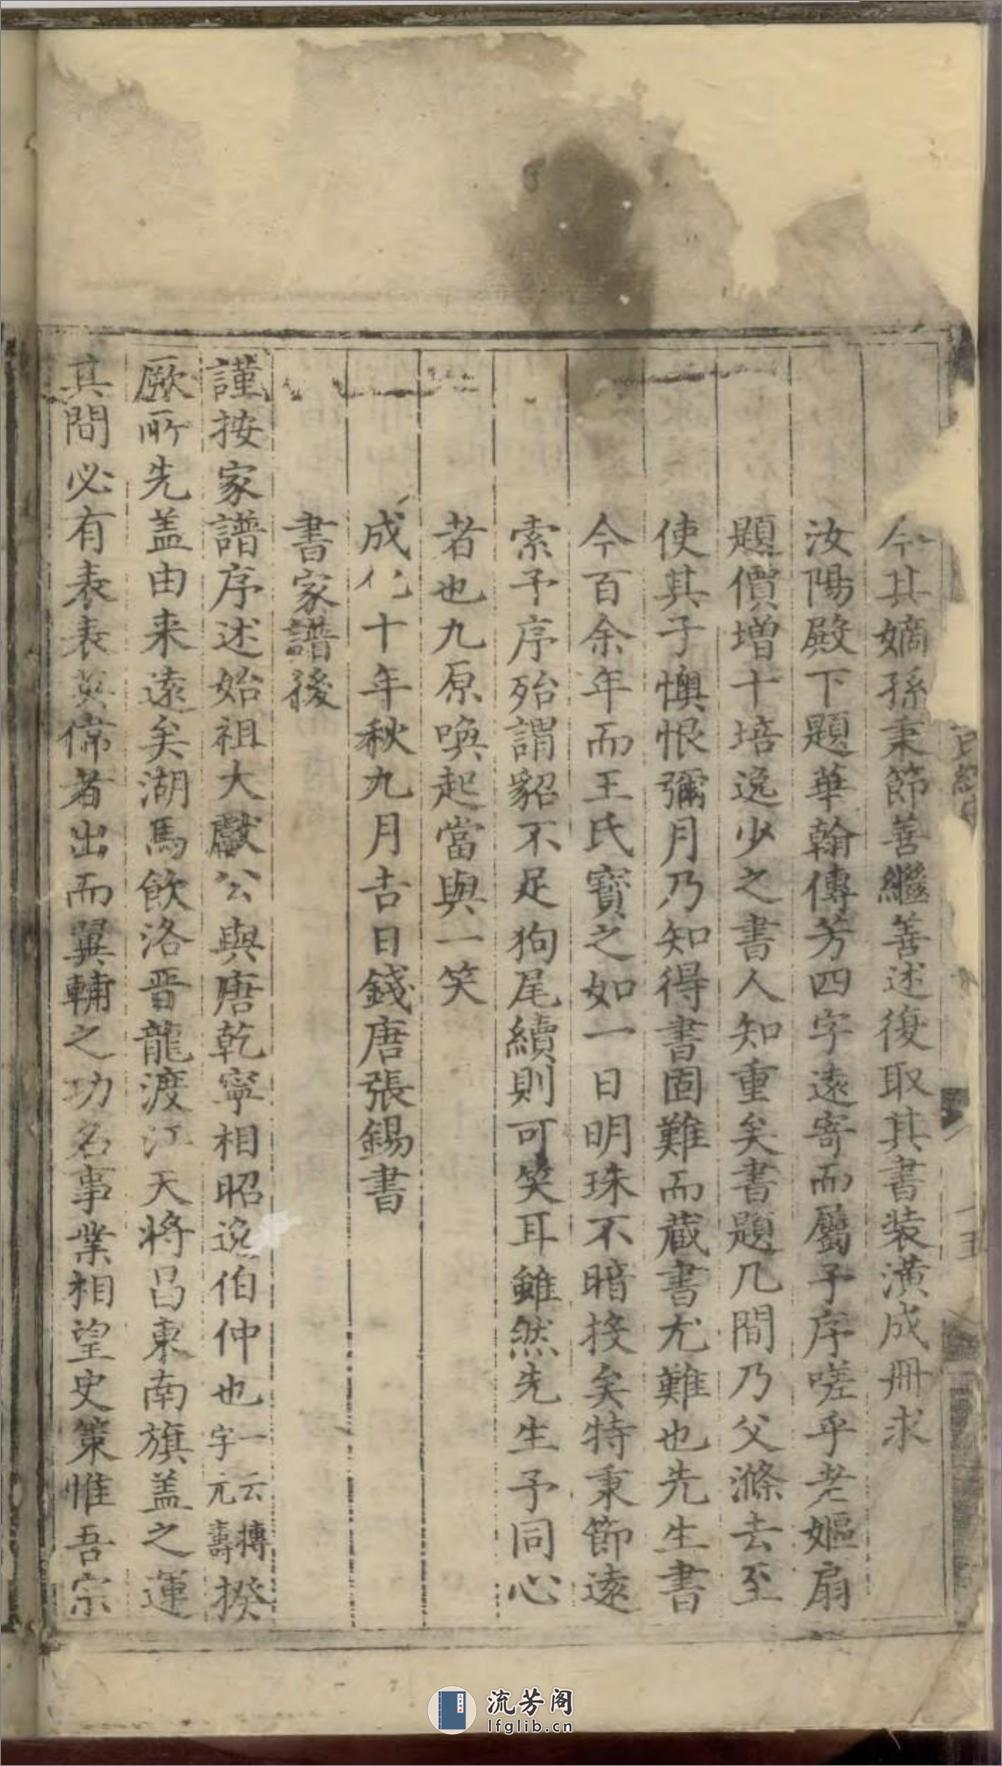 今其嫡孫秉節善繼善述復取其書裝潢成冊求
汝陽殿下題華翰傳芳四字遠寄而屬予序嗟乎老嫗扇
題價增十培逸少之書人知重矣書題几間乃父滌去至
使其子懊恨彌月乃知得書固難而蔵書尤難也先生書
今百余年而王氏寶之如一日明珠不暗投矣特秉節遠
索予序殆謂貂不足狗尾續則可笑耳雖然先生予同心
者也九原喚起當與一笑
成化十年秋九月吉日錢唐張錫書
書家譜後
謹按家譜序述始祖大獻公與唐乾寧相昭逸伯仲也一云摶字元壽揆
厥所先盖由来遠矣湖馬飲洛晋龍渡江天將呂東南旗盖之運
其間必有表表英偉者出而翼輔之功名事業相望史策惟吾宗
流芳阁
lfglib.cn